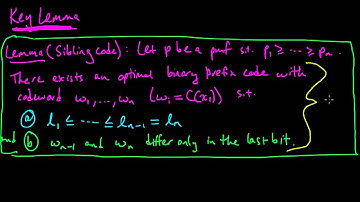 Key Lemma
Lemma (Sibling code): Let p be a pmf s.t. p₁ ≥ ⋯ ≥ pₙ.
There exists an optimal binary prefix code with
codeword w₁, ..., wₙ (wᵢ = C(xᵢ)) s.t.
ⓐ l₁ ≤ ⋯ ≤ lₙ₋₁ = lₙ
and ⓑ wₙ₋₁ and wₙ differ only in the last bit.